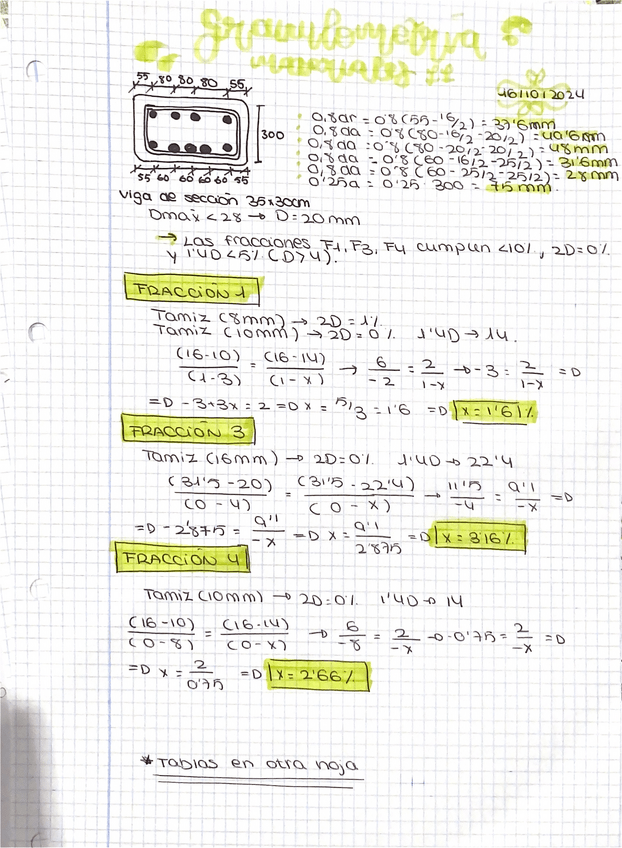 Granulometría
materiales II
16/10/2024
55 80 80 80 55
300
55 60 60 60 60 55
0,8ar = 0'8(55-16/2) = 37'6mm
0,8da = 0'8(80-16/2-20/2) = 49'6mm
0,8da = 0'8(80-20/2-20/2) = 48mm
0,8da = 0'8(60-16/2-25/2) = 31'6mm
0,8da = 0'8(60-25/2-25/2) = 28mm
0'25a = 0'25·300 = 75mm.
Viga de sección 35x30cm
Dmax < 28 → D = 20mm
→ Las fracciones F1, F3, F4 cumplen <10%, 2D = 0%
y 1'4D < 5% (D>4).
FRACCIÓN 1
Tamiz (8mm) → 2D = 1%
Tamiz (10mm) → 2D = 0% 1'4D → 14.
(16-10)/(1-3) = (16-14)/(1-x) → 6/-2 = 2/1-x → -3 = 2/1-x =D
=D -3+3x = 2 =D x = 5/3 = 1'6 =D x = 1'6%
FRACCIÓN 3
Tamiz (16mm) → 2D = 0% 1'4D → 22'4
(31'5-20)/(0-4) = (31'5-22'4)/(0-x) → 11'5/-4 = 9'1/-x =D
=D -2'875 = 9'1/-x =D x = 9'1/2'875 =D x = 3'16%
FRACCIÓN 4
Tamiz (10mm) → 2D = 0% 1'4D → 14
(16-10)/(0-8) = (16-14)/(0-x) → 6/-8 = 2/-x → -0'75 = 2/-x =D
=D x = 2/0'75 =D x = 2'66%
* Tablas en otra hoja